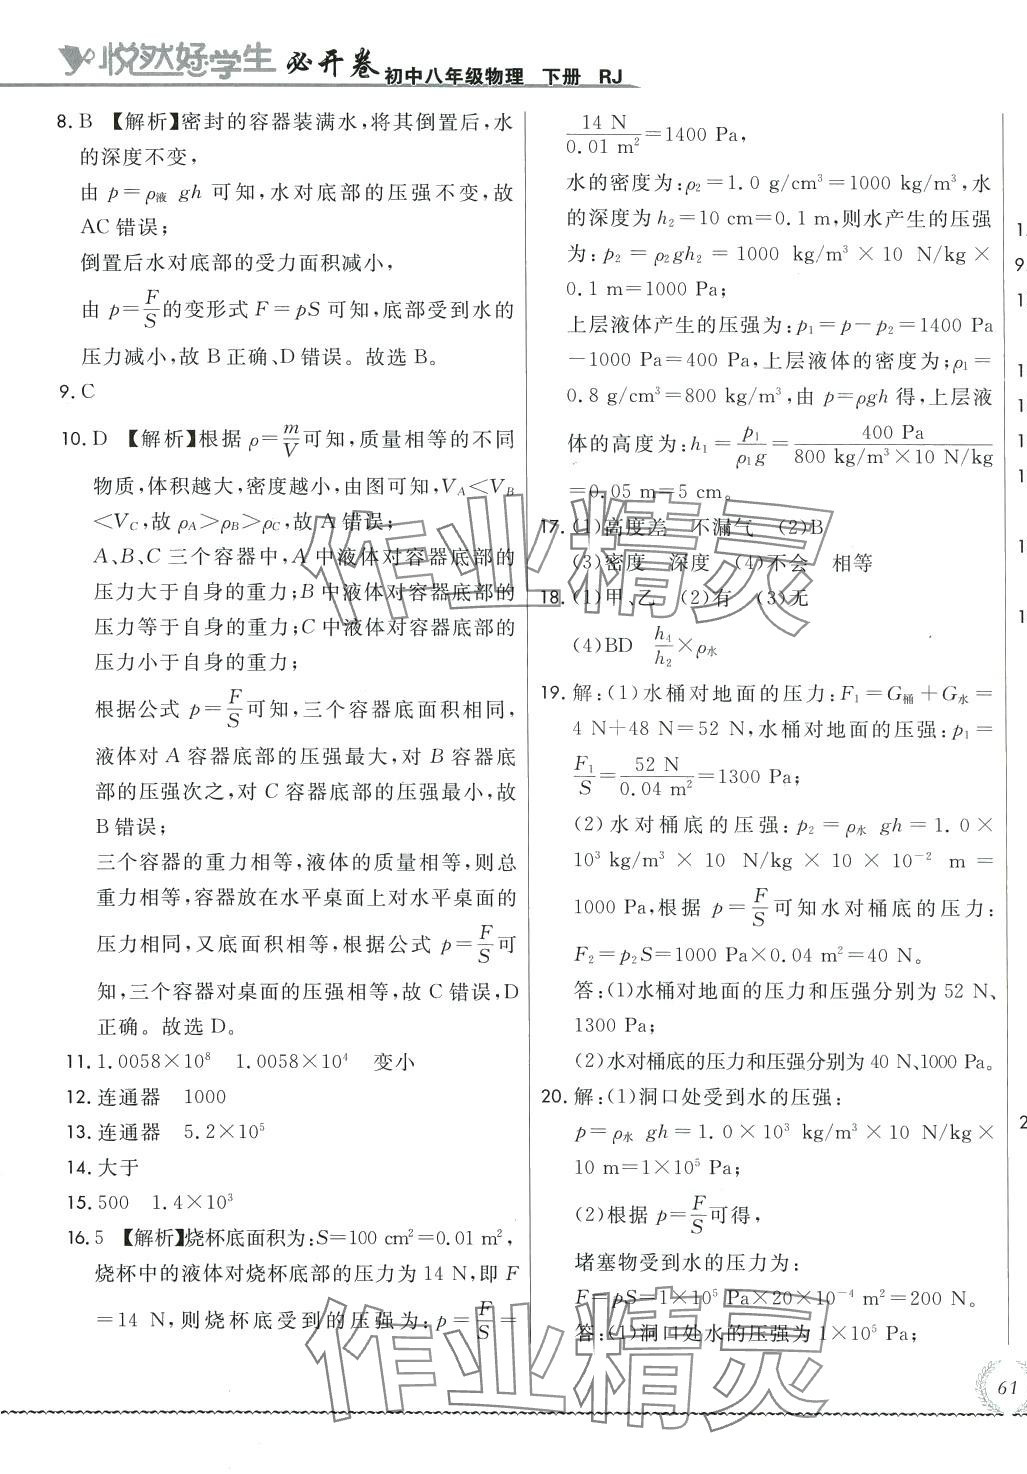 悦然好学生 必开卷 初中八年级物理 下册 RJ
8. B 【解析】密封的容器装满水,将其倒置后,水
的深度不变,
由 p=ρ液 gh 可知,水对底部的压强不变,故
AC错误;
倒置后水对底部的受力面积减小,
由 p=F/S的变形式 F=pS 可知,底部受到水的
压力减小,故 B正确、D错误。故选 B。
9. C
10. D 【解析】根据 ρ=m/V可知,质量相等的不同
物质,体积越大,密度越小,由图可知,VA<VB
<VC,故 ρA>ρB>ρC,故 A错误;
A、B、C 三个容器中,A 中液体对容器底部的
压力大于自身的重力;B 中液体对容器底部的
压力等于自身的重力;C 中液体对容器底部的
压力小于自身的重力;
根据公式 p=F/S可知,三个容器底面积相同,
液体对 A 容器底部的压强最大,对 B 容器底
部的压强次之,对 C 容器底部的压强最小,故
B错误;
三个容器的重力相等,液体的质量相等,则总
重力相等,容器放在水平桌面上对水平桌面的
压力相同,又底面积相等,根据公式 p=F/S可
知,三个容器对桌面的压强相等,故 C错误,D
正确。故选 D。
11. 1.0058×10⁸ 1.0058×10⁴ 变小
12. 连通器 1000
13. 连通器 5.2×10⁵
14. 大于
15. 500 1.4×10³
16. 5 【解析】烧杯底面积为:S=100 cm²=0.01 m²,
烧杯中的液体对烧杯底部的压力为 14 N,即 F
=14 N,则烧杯底受到的压强为:p=F/S=
14 N/0.01 m²=1400 Pa,
水的密度为:ρ₂=1.0 g/cm³=1000 kg/m³,水
的深度为 h₂=10 cm=0.1 m,则水产生的压强
为:p₂=ρ₂gh₂=1000 kg/m³×10 N/kg×
0.1 m=1000 Pa;
上层液体产生的压强为:p₁=p-p₂=1400 Pa
-1000 Pa=400 Pa,上层液体的密度为:ρ₁=
0.8 g/cm³=800 kg/m³,由 p=ρgh 得,上层液
体的高度为:h₁=p₁/ρ₁g=400 Pa/800 kg/m³×10 N/kg
=0.05 m=5 cm。
17. (1)高度差 不漏气 (2)B
(3)密度 深度 (4)不会 相等
18. (1)甲、乙 (2)有 (3)无
(4)BD h₄/h₂×ρ水
19. 解:(1)水桶对地面的压力:F₁=G桶+G水=
4 N+48 N=52 N,水桶对地面的压强:p₁=
F₁/S=52 N/0.04 m²=1300 Pa;
(2)水对桶底的压强:p₂=ρ水 gh=1.0×
10³ kg/m³×10 N/kg×10×10⁻² m=
1000 Pa,根据 p=F/S可知水对桶底的压力:
F₂=p₂S=1000 Pa×0.04 m²=40 N。
答:(1)水桶对地面的压力和压强分别为 52 N、
1300 Pa;
(2)水对桶底的压力和压强分别为 40 N、1000 Pa。
20. 解:(1)洞口处受到水的压强:
p=ρ水 gh=1.0×10³ kg/m³×10 N/kg×
10 m=1×10⁵ Pa;
(2)根据 p=F/S可得,
堵塞物受到水的压力为:
F=pS=1×10⁵ Pa×20×10⁻⁴ m²=200 N。
答:(1)洞口处水的压强为 1×10⁵ Pa;
作业精灵
作业精灵
61